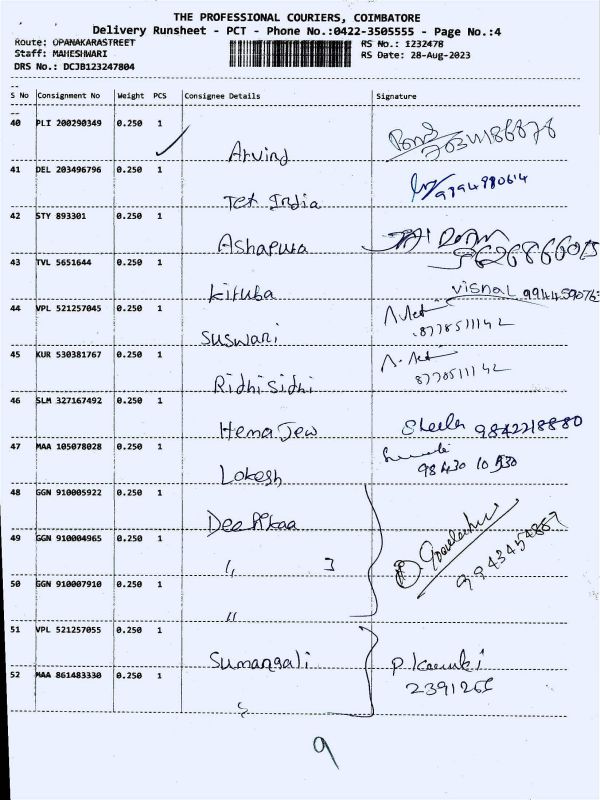 THE PROFESSIONAL COURIERS, COIMBATORE
Delivery Runsheet - PCT - Phone No.:0422-3505555 - Page No.:4
Route: OPANAKARASTREET RS No.: 1232478
Staff: MAHESHWARI RS Date: 28-Aug-2023
DRS No.: DCJB123247804
S No Consignment No Weight PCS Consignee Details Signature
40 PLI 200290349 0.250 1
Arvind
41 DEL 203496796 0.250 1
Tex India
42 STY 893301 0.250 1
Ashapura
43 TVL 5651644 0.250 1
Kiruba Vishal
44 VPL 521257045 0.250 1
Suswani 8778511142
45 KUR 530381767 0.250 1
Ridhi Sidhi 8778511142
46 SLM 327167492 0.250 1
Hema Jew 9842218880
47 MAA 105078028 0.250 1
Lokesh
48 GGN 910005922 0.250 1
Deepikaa
49 GGN 910004965 0.250 1
" 3
50 GGN 910007910 0.250 1
"
51 VPL 521257055 0.250 1
Sumangali
52 MAA 861483330 0.250 1
9